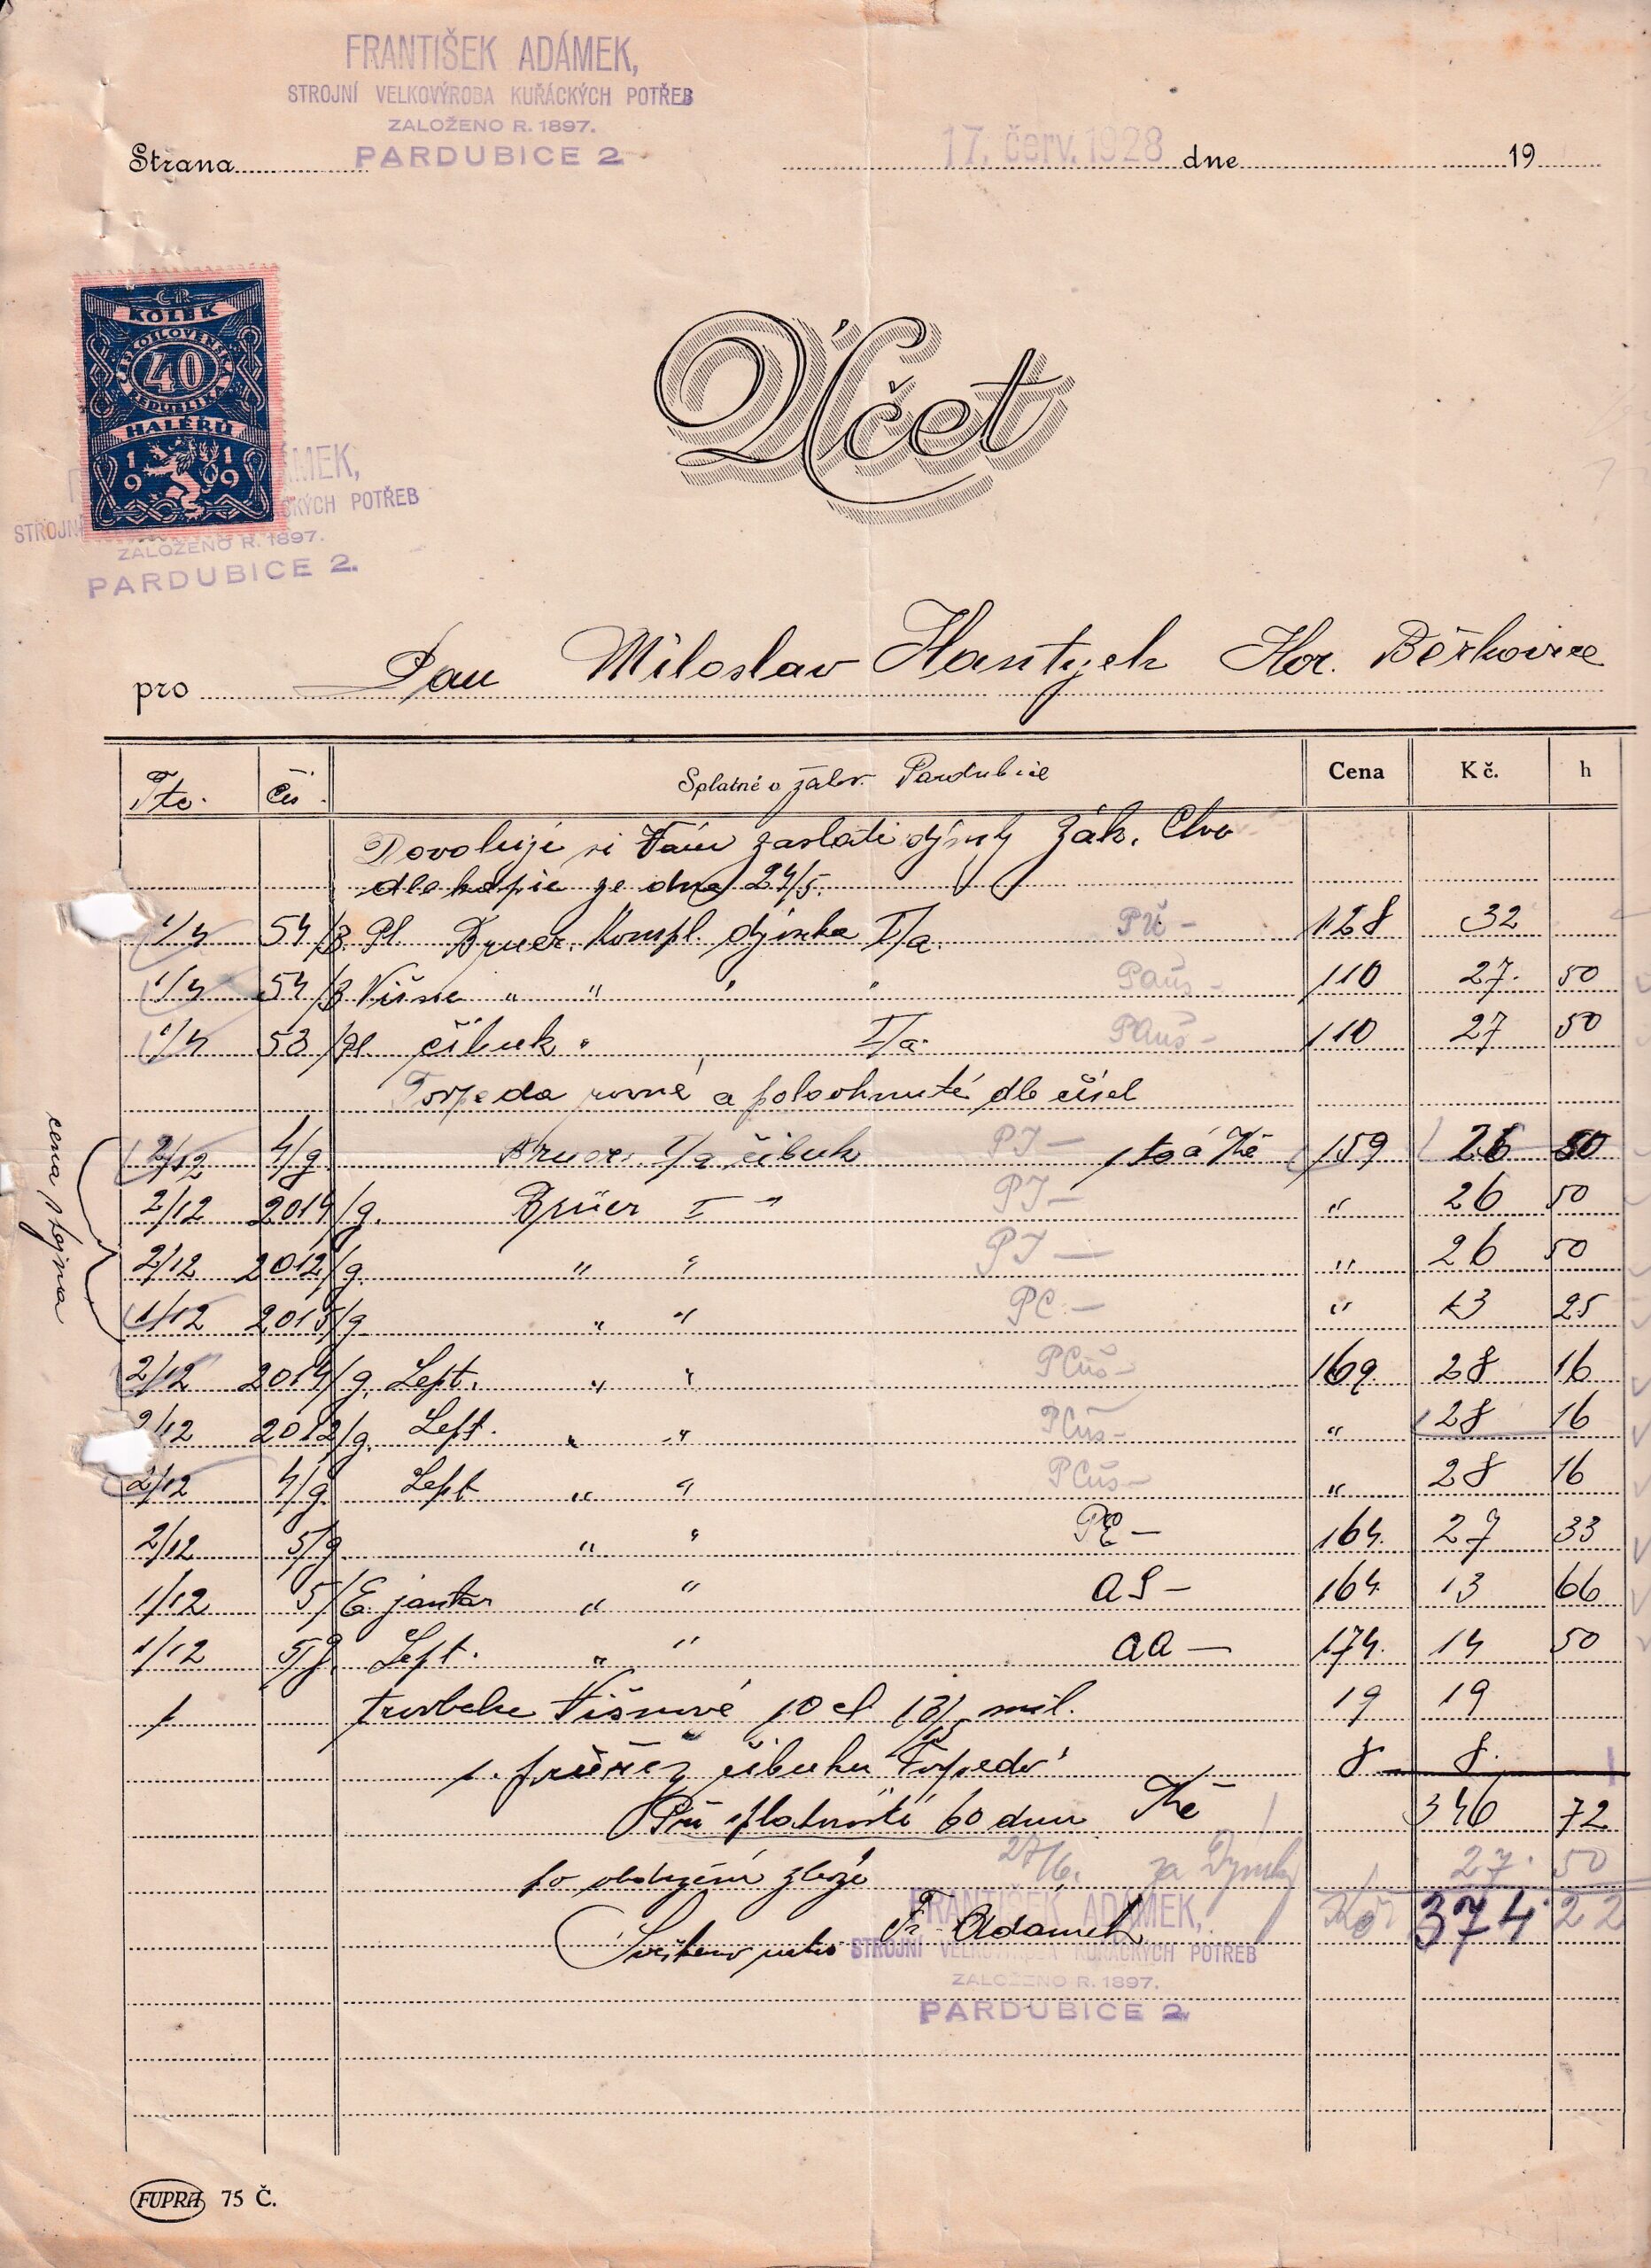 FRANTIŠEK ADÁMEK,
STROJNÍ VELKOVÝROBA KUŘÁCKÝCH POTŘEB
ZALOŽENO R. 1897.
PARDUBICE 2
Strana
17. červ. 1928 dne 19
ČSR
KOLEK
ČESKOSLOVENSKÁ
40
REPUBLIKA
HALÉŘŮ
1919
MEK,
STROJNÍ KÝCH POTŘEB
ZALOŽENO R. 1897.
PARDUBICE 2.
Účet
pro Pan Miloslav Hantych Hor. Běřkovice
Čís. Splatné a žalov. Pardubice Cena Kč. h
Dovoluji si Vám zaslati dýmky Zák. Ctvo
dle kopie ze dne 24/5.
1/4 54/3 Pl. Bruer. Kompl. dýmka I/a. PÚ - 128 32
1/4 54/3 Višne " " " " Paúš - 110 27. 50
1/4 53/Pl. čibuk " I/a. PAúš - 110 27 50
Torpeda rovné a poloohnuté dle čísel
2/12 4/g Bruer. I/a čibuk PI - 1 to á Kč 159 26 50
2/12 2014/g. Brüer I " PI - " 26 50
2/12 2012/g. " " PI - " 26 50
1/12 2015/g " " PC - " 13 25
2/12 2014/g. Lept. " " PCúš - 169. 28 16
2/12 2012/g. Lept. " " PCúš - " 28 16
2/12 4/g Lept " " PCúš - " 28 16
2/12 5/g " " PE - 164. 27 33
1/12 5/E. jantar " " AS - 164. 13 66
1/12 5/g. Lept. " " AA - 174. 14 50
cena stejna
1 Višnové 19 19
1. čibuku Torpedo 8 8.
Při splatnosti 60 dnu Kč 346 72
po obdržení zboží 27/6. za Dýmky 27. 50
Fr. Adámek Kč 374. 22
FRANTIŠEK ADÁMEK,
STROJNÍ VELKOVÝROBA KUŘÁCKÝCH POTŘEB
ZALOŽENO R. 1897.
PARDUBICE 2
FUPRA 75 Č.